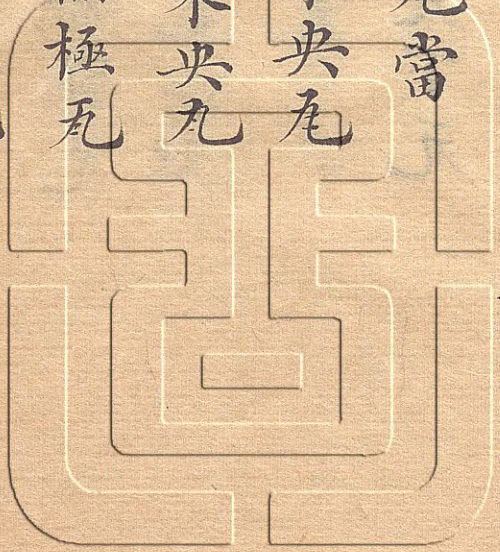 當
央瓦
未央瓦
極瓦